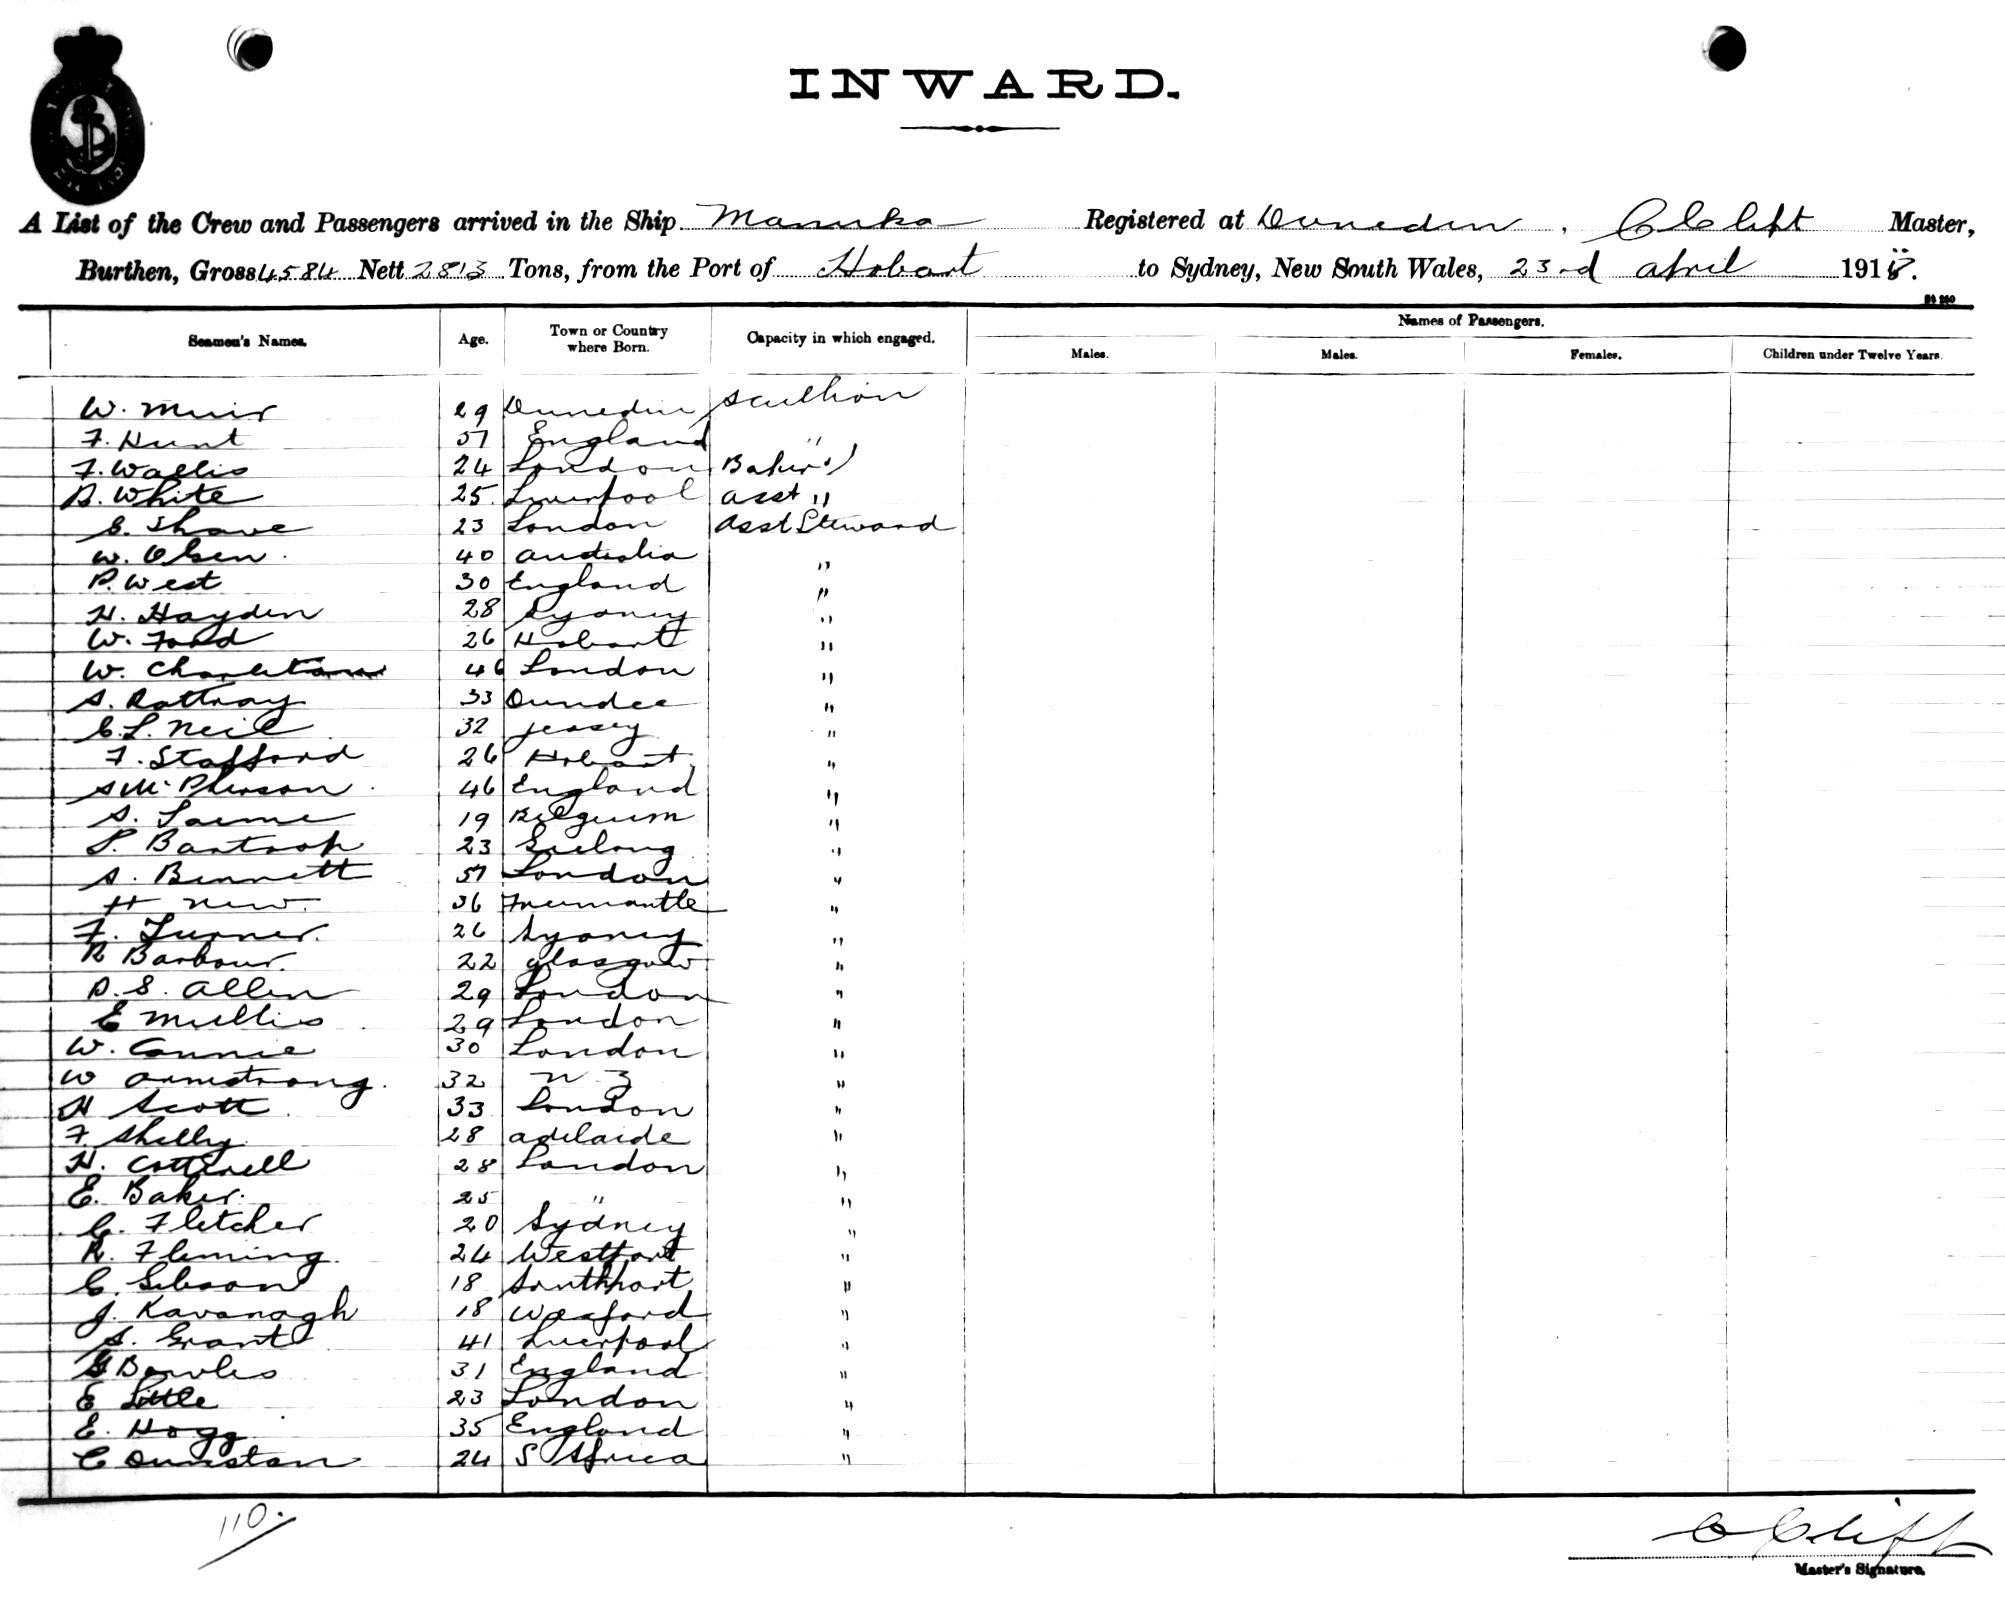 INWARD.
A List of the Crew and Passengers arrived in the Ship Manuka Registered at Dunedin. C Clift Master,
Burthen, Gross 4584 Nett 2813 Tons, from the Port of Hobart to Sydney, New South Wales, 23rd April 1918.
Seamen's Names. Age. Town or Country where Born. Capacity in which engaged. Names of Passengers.
Males. Males. Females. Children under Twelve Years.
W. Muir 29 Dunedin Scullion
F. Hunt 51 England "
F. Wallis 24 London Baker
B. White 25 Liverpool asst "
S. Shave 23 London Asst Steward
W. Olsen 40 Australia "
P. West 30 England "
H. Hayden 28 Sydney "
W. Ford 26 Hobart "
W. Charleton 46 London "
A. Rattray 33 Dundee "
C. L. Neil 32 Jersey "
F. Stafford 26 Hobart "
A McPherson 46 England "
A. 19 Belgium "
P. Bartrop 23 Geelong "
A. Bennett 51 London "
H New 36 Freemantle "
F. Turner 26 Sydney "
R Barbour 22 Glasgow "
D. S. Allen 29 London "
E Mullis 29 London "
W. 30 London "
W Armstrong. 32 N Z "
H Scott 33 London "
F. Shelly 28 Adelaide "
H. Cottrell 28 London "
E. Baker. 25 " "
C. Fletcher 20 Sydney "
R. Fleming 24 Westport "
C. Gibson 18 Southport "
J. Kavanagh 18 Wexford "
A. Grant 41 Liverpool "
G Bowles 31 England "
E Little 23 London "
E. Hogg 35 England "
C Dunstan 24 S Africa "
110.
C Clift
Master's Signature.